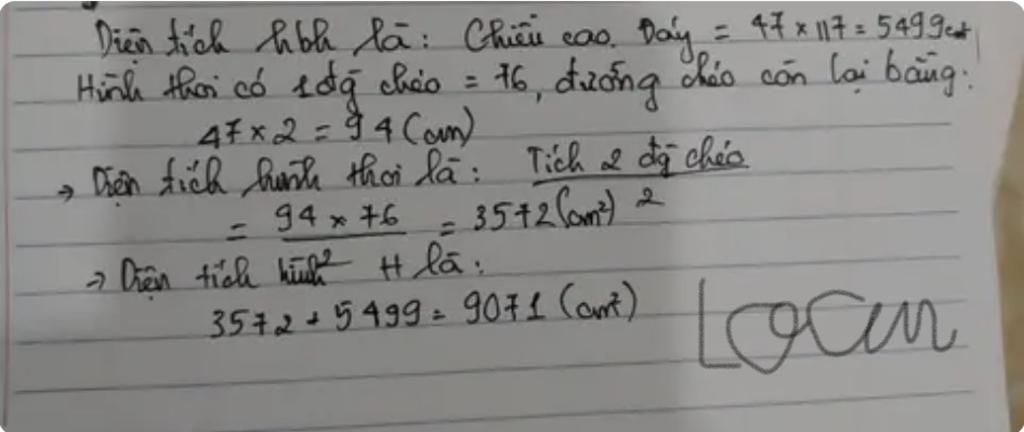 Diện tích hbh là: Chiều cao. Đáy = 47 x 117 = 5499
Hình thoi có 1 đg chéo = 76, đường chéo còn lại bằng:
47 x 2 = 94 (cm)
→ Diện tích hình thoi là: Tích 2 đg chéo
2
= 94 x 76 = 3572 (cm²)
2
→ Diện tích hình H là:
3572 + 5499 = 9071 (cm²)